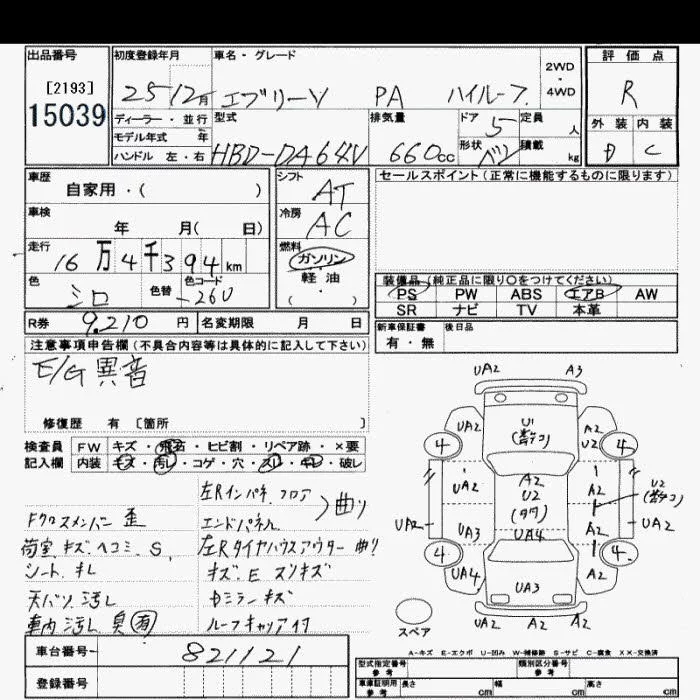 出品番号 初度登録年月 車名・グレード 2WD・4WD 評価点
[2193]
15039
25 12月 エブリーV PA ハイルーフ. R
ディーラー・並行 型式 排気量 ドア 5 定員 人
モデル年式 年
外装 内装
ハンドル 左・右 HBD-DA64V 660cc 形状 バン 積載 kg
D C
車歴 自家用・( ) シフト AT
セールスポイント(正常に機能するものに限ります)
車検 年 月( 日) 冷房 AC
走行 16万4千394km 燃料 ガソリン・軽油( )
色 シロ 色替 色コード -26U
装備品(純正品に限り○をつけてください)
PS PW ABS エアB AW
SR ナビ TV 本革
R券 9,210円 名変期限 月 日
新車保証書 後日品
有・無
注意事項申告欄(不具合内容等は具体的に記入して下さい)
E/G異音
修復歴 有 [箇所 ]
検査員 FW キズ・飛石・ヒビ割・リペア跡・×要
記入欄 内装 キズ・汚レ・コゲ・穴・スレ・キレ・破レ
左Rインパネ.フロア 曲り
Fクロスメンバー 歪 エンドパネル
荷室 キズ.ヘコミ.S. 左Rタイヤハウスアウター 曲り
シート.キレ キズ.E スリキズ
天バリ.汚レ Dミラーキズ
車内 汚レ 臭有 ルーフキャリア付
車台番号- 821121
登録番号
UA2 A3
U1
UA2 A2 U2
4 4
UA2 A2 U2 (タワ) A2 U2
UA2 UA2
UA3 UA4 A2
4 4
UA4 UA3 A2
UA2 A2 A2
スペア
A-キズ E-エクボ U-凹み W-補修跡 S-サビ C-腐食 XX-交換済
型式指定番号 参考 類別区分番号 参考
車庫証明用 参考 長さ cm 幅 cm 高さ cm